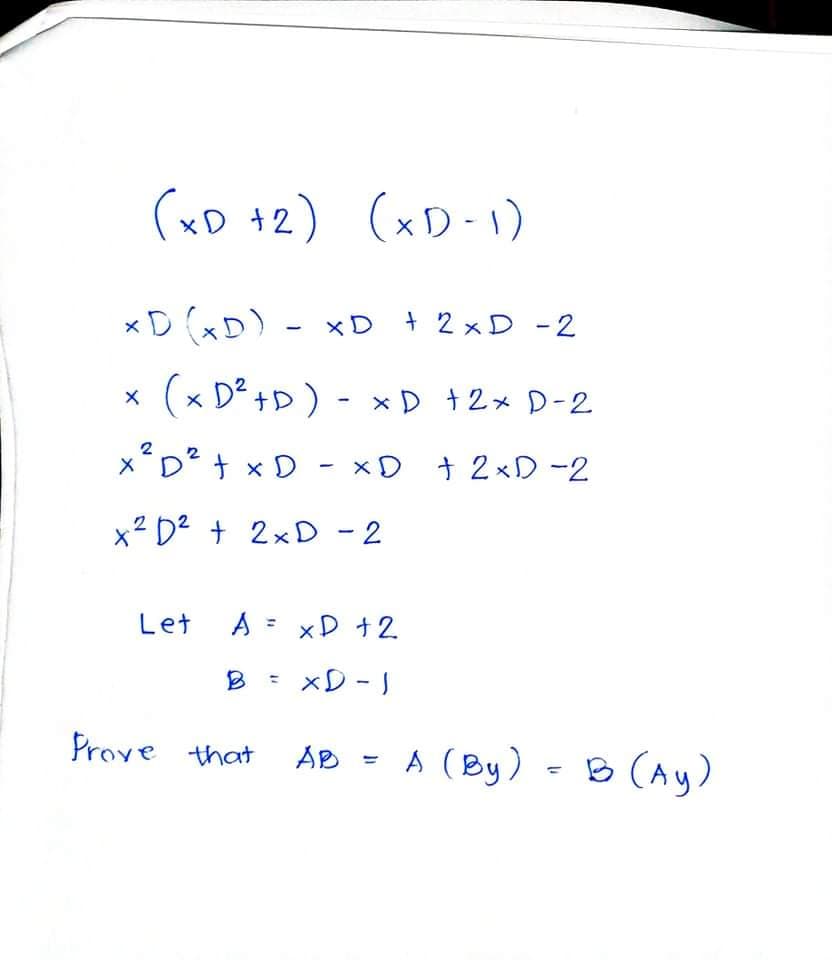 (xD +2) (xD-1)
xD(xD) - xD + 2xD -2
x (xD²+D) - xD +2x D-2
x²D² + xD - xD + 2xD -2
x²D² + 2xD -2
Let A = xD +2
B = xD-1
Prove that AB = A (By) = B (Ay)